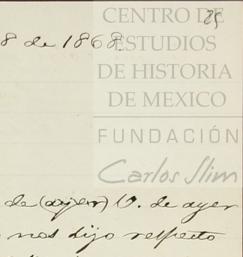 25
8 de 1868
CENTRO DE
ESTUDIOS
DE HISTORIA
DE MEXICO
FUNDACIÓN
Carlos Slim
de (ayer) V. de ayer
nos dijo respecto